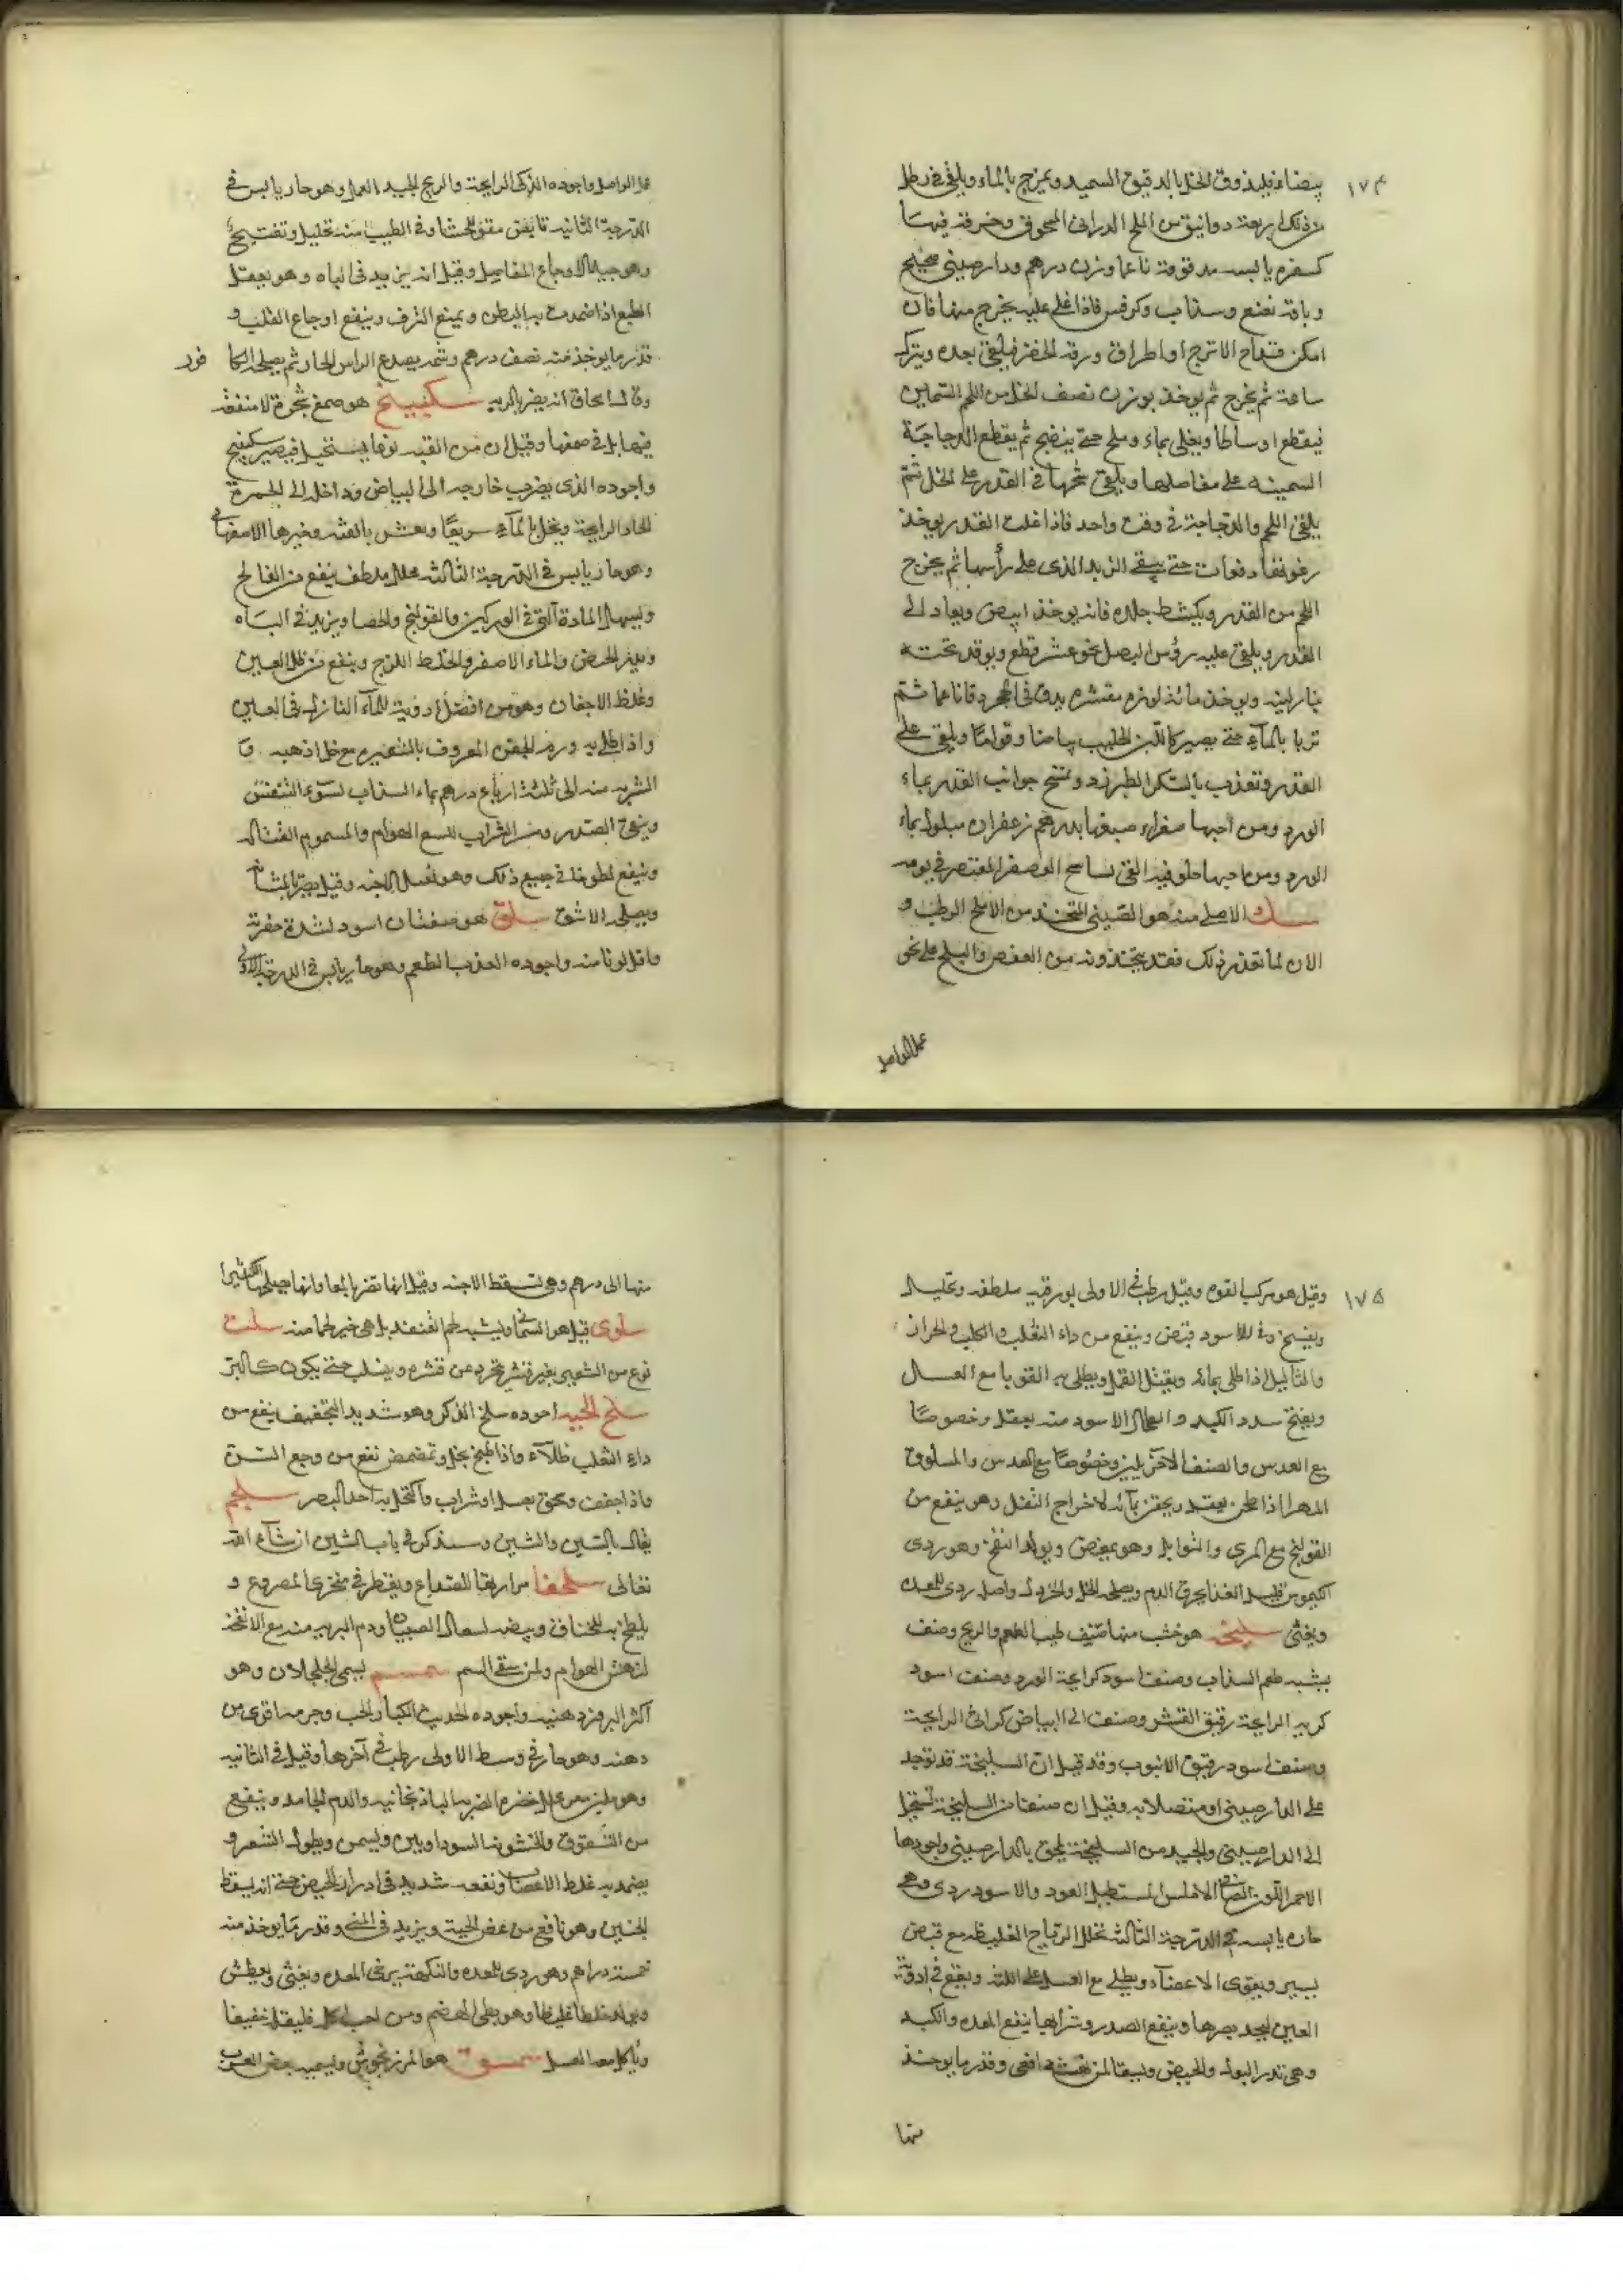 ١٧٤
بيضاء فليذوق الخل بالدقيق السميد ويمزج بالماء ويلقى في رطل
من ذلك اربعة دوانيق من الملح الدراني المسحوق وخرقة فيها
كسفره يابسه مدقوقة ناعما وزن درهم ودار صيني صحيح
وباقة نعنع وسذاب وكرفس فاذا غلى عليه يخرج منها فان
امكن قداح الاترج او اطراف ورقه الخضر فيلقى بعده ويترك
ساعة ثم يخرج ثم يوخذ بوزن نصف الخل من اللحم السمين
فيقطع اوساطا ويغلى بماء وملح حتى ينضج ثم يقطع الدجاجة
السمينه على مفاصلها ويلقى شحمها في القدر على الخل ثم
يلقى اللحم والدجاجة في وقت واحد فاذا غلت القدر يوخذ
رغوتها دفعات حتى ينقى الزبد الذى على رأسها ثم يخرج
اللحم من القدر ويكشط جلده فانه يوخذ ابيض ويعاد الى
القدر ويلقى عليه رؤس البصل نحو عشر قطع ويوقد تحته
بنار لينه ويوخذ مائة لوزه مقشره يدق في الحجر دقا ناعما ثم
تربا بالمآء حتى يصير كاللبن الحليب بياضا وقواما ويلقى على
القدر وتعذب بالسكر الطبرزد ويمسح جوانب القدر بماء
الورد ومن احبها صفراء صبغها بدرهم زعفران مبلول بماء
الورد ومن احبها حلو فيه القى نساسح العصفر المعتصر في يومه
سك الاصلى منه هو الصيني المتخذ من الاملج الرطب و
الان لما تعذر ذلك فقد يتخذونه من العفص والبلح على نحو
عمل الرامل
عمل الرامل واجوده الذكى الرايحة والريح الجيد العمل وهو حار يابس في
الدرجة الثانيه قابض مقو للحشا وفي الطيب منه تحليل وتفتيح
وهو جيد لاوجاع المفاصل وقيل انه يزيد في الباه وهو يعقل
الطبع اذا ضمدت به البطن ويمنع النزف وينفع اوجاع القلب و
قدر ما يوخذ منه نصف درهم وشمه يصدع الراس الحار ثم يصلحه الكا فور
وقال اسحاق انه يضر بالريه سكبينج هو صمغ شجرة لا منفعة
فيها بل في صمغها وقيل ان من القنه نوعا يستحيل فيصير سكبينج
واجوده الذى يضرب خارجه الى البياض وداخله الى الحمرة
الحاد الرايحة وينحل بالمآء سريعا ويغش بالقنه وخيرها الاصفهانى
وهو حار يابس في الدرجة الثالثه محلل ملطف ينفع من الفالج
ويسهل المادة التى في الوركين والقولنج والحصا ويزيد في الباه
ويدر الحيض والماء الاصفر والخلط اللزج وينفع من ظلمة العين
وغلظ الاجفان وهو من افضل ادوية الماء النازل في العين
واذا طلى به ورم الجفن المعروف بالشعيره مع خل اذهبه و
الشربه منه الى ثلثة ارباع درهم بماء السذاب لسوء التنفس
ووجع الصدر ومن الشراب للسع الهوام والسموم القتاله
وينفع لطوخا في جميع ذلك وهو يقتل الاجنه وقيل يضر بالمثانه
ويصلحه الاشق سلق هو صنفان اسود لشدة خضرته
واقل لونا منه واجوده العذب الطعم وهو حار يابس في الدرجة الاولى
١٧٥
وقيل هو مركب القوه وقيل رطب في الاولى بورقيه ملطفه وتحليل
وتفتيح وفي الاسود قبض وينفع من داء الثعلب والكلف والحزاز
والثاليل اذا طلى بمائه ويقتل القمل ويطلى به القوبا مع العسل
ويفتح سدد الكبد والطحال الاسود منه يعقل وخصوصا
مع العدس والصنف الاخر يلين وخصوصا مع العدس والمسلوق
المهرا اذا طحن يعقد ويحقن بمآئه لاخراج الثفل وهو ينفع من
القولنج مع المرى والتوابل وهو يمغص ويولد النفخ وهو ردى
الكيموس قليل الغذا يحرق الدم ويصلحه الخل والخردل واصله ردى للمعده
ويغثى سليخه هو خشب منها صنف طيب الطعم والريح وصنف
يشبه طعم السذاب وصنف اسود كرايحة الورد وصنف اسود
كريه الرايحة رقيق القشر وصنف الى البياض كراثى الرايحة
وصنف اسود رقيق الانبوب وقد قيل ان السليخة قد توجد
على الدارصينى او متصلا به وقيل ان صنفا من السليخة تستحيل
الى الدارصينى والجيد من السليخة يلحق بالدارصينى واجودها
الاحمر اللون الصافى الاملس المستطيل العود والاسود ردى وهى
حاره يابسه في الدرجة الثالثه تحلل الرياح الغليظه مع قبض
يسير ويقوى الاعضآء ويطلى مع العسل على اللثه ويقع في ادوية
العين ليحد بصرها وينفع الصدر وشرابها ينفع المعده والكبد
وهى تدر البول والحيض ويسقا لمن نهشه افعى وقدر ما يوخذ
منها
منها الى درهم وهى تسقط الاجنه وقيل انها تضر بالمعا وانها يصلحها الكثيرا
سلوى قيل هو السمانى ويشبه طعم القنفذ بل هى خير لحما منه سلت
نوع من الشعير بغير قشر يتجرد عن قشره وينسلب حتى يكون كالبر
سلخ الحيه اجوده سلخ الذكر وهو شديد التجفيف ينفع من
داء الثعلب طلآء واذا طبخ بخل وتمضمض نفع من وجع السن
واذا جففت وسحق بعسل او شراب واكتحل به احد البصر سلجم
يقال بالسين والشين وسنذكر في باب الشين ان شآء الله
تعالى سلحفا مرارتها للصداع ويقطر في منخرى المصروع و
يلطخ به للخناق وبيضه لسعال الصبيان ودم البريه منه مع الانفحه
لنهش الهوام ولمن سقى السم سمسم يسمى الجلجلان وهو
اكثر البزور دهنيه واجوده الحديث الكبار الحب وجرمه اقوى من
دهنه وهو حار في وسط الاولى رطب في آخرها وقيل في الثانيه
وهو ملين معرى للاخضر والضربه الباذنجانيه والدم الجامد وينفع
من الشقوق والخشونه السوداويين ويسمن ويطول الشعر و
يضمد به غلظ الاعصاب ونفعه شديد في ادرار الحيض حتى انه يسقط
الجنين وهو نافع من عض الحية ويزيد في المنى وقدر ما يوخذ منه
خمسة دراهم وهو ردى للمعده والنكهة يرخى المعده ويغثى ويعطش
ويولد خلطا غليظا وهو بطى الهضم ومن احب اكله فليقله خفيفا
وياكله مع العسل سمسق هو المرزنجوش ويسميه بعض العرب